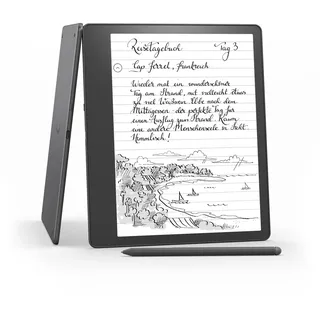 Reisetagebuch Tag 3
Cap Ferret, Frankreich
Wieder mal ein wunderschöner
Tag am Strand, mit vielleicht etwas
zu viel Wachsen. Ebbe nach dem
Mittagessen - der perfekte Tag für
einen Ausflug zum Strand. Kaum
eine andere Menschenseele in Sicht.
Himmlisch!